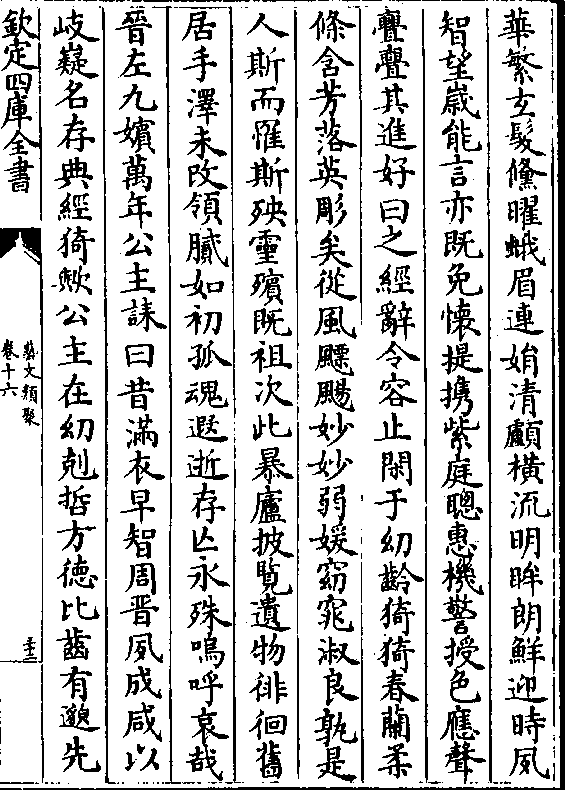 華繁玄髮儵曜蛾眉連娟清顱橫流明眸朗鮮迎時夙
智望嵗能言亦既免懐提攜紫庭聰惠機警授色應聲
亹亹其進好曰之經辭令容止閑于幼齡猗猗春蘭柔
條含芳落英彫矣從風飃颺妙妙弱媛窈窕淑良孰是
人斯而罹斯殃靈殯既祖次此暴廬披覽遺物徘徊舊
居手澤未改領膩如初孤魂遐逝存亾永殊嗚呼哀哉
晉左九嬪萬年公主誄曰昔滿衣早智周晉夙成咸以
岐嶷名存典經猗歟公主在幼剋哲方徳比齒有邈先
欽定四庫全書
藝文類聚
卷十六